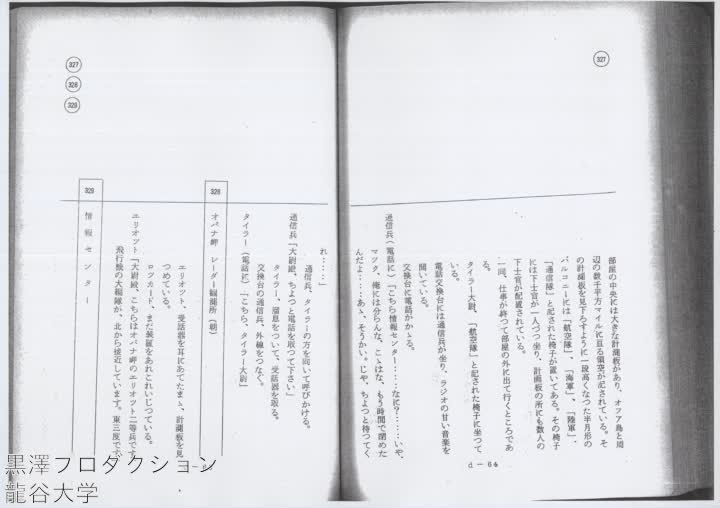 327
部屋の中央には大きな計画板があり、オアフ島と周
辺の数千平方マイルに亘る領空が記されている。そ
の計画板を見下ろすように一段高くなった半月形の
バルコニーには「航空隊」、「海軍」、「陸軍」、
「通信隊」と記された椅子が置いてある。その椅子
には下士官が一人づつ坐り、計画板の所にも数人の
下士官が配置されている。
一同、仕事が終って部屋の外に出て行くところであ
る。
タイラー大尉、「航空隊」と記された椅子に坐って
いる。
電話交換台には通信兵が坐り、ラジオの甘い音楽を
聞いている。
交換台に電話がかゝる。
通信兵（電話に）「こちら情報センター‥‥‥なに？‥‥‥いや、
マック、俺には分らんな。こゝはな、もう時間で閉めた
んだよ‥‥‥あゝ、そうかい。じゃ、ちょっと待ってく
d－64
327
328
329
れ‥‥‥」
通信兵、タイラーの方を向いて呼びかける。
通信兵「大尉殿、ちょっと電話を取って下さい」
タイラー、溜息をついて、受話器を取る。
交換台の通信兵、外線をつなぐ。
タイラー（電話に）「こちら、タイラー大尉」
328 オパナ岬 レーダー観測所（朝）
エリオット、受話器を耳にあてたまゝ、計画板を見
つめている。
ロッカード、まだ装置をあれこれいじっている。
エリオット「大尉殿、こちらはオパナ岬のエリオット二等兵です
飛行機の大編隊が、北から接近しています。東三度です
329 情報センター
黒澤プロダクション
龍谷大学